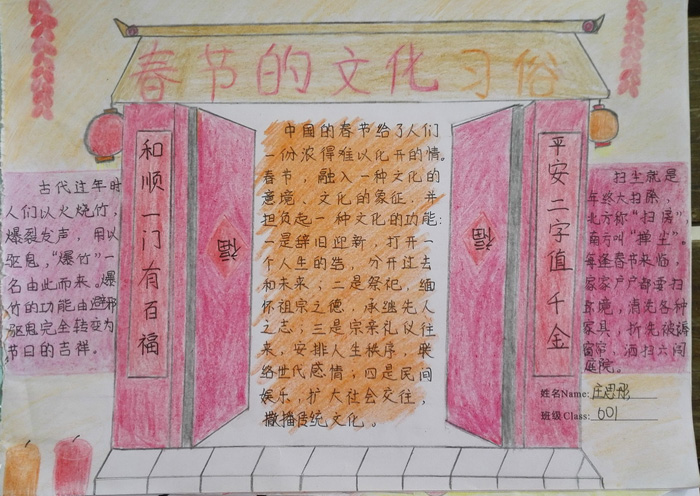 春节的文化习俗
和顺一门有百福
平安二字值千金
福
福
古代过年时
人们以火烧竹，
爆裂发声，用以
驱鬼，“爆竹”一
名由此而来。爆
竹的功能由避邪
驱鬼完全转变为
节日的吉祥。
中国的春节给了人们
一份浓得难以化开的情。
春节，融入一种文化的
意境、文化的象征，并
担负起一种文化的功能：
一是辞旧迎新，打开一
个人生的结，分开过去
和未来；二是祭祀，缅
怀祖宗之德，承继先人
之志；三是宗亲礼仪往
来，安排人生秩序，联
络世代感情；四是民间
娱乐，扩大社会交往，
撒播传统文化。
扫尘就是
年终大扫除，
北方称“扫房”，
南方叫“掸尘”。
每逢春节来临，
家家户户都要扫
环境，清洗各种
家具，拆洗被褥
窗帘，洒扫六闾
庭院。
姓名Name: 庄思彤
班级Class: 601